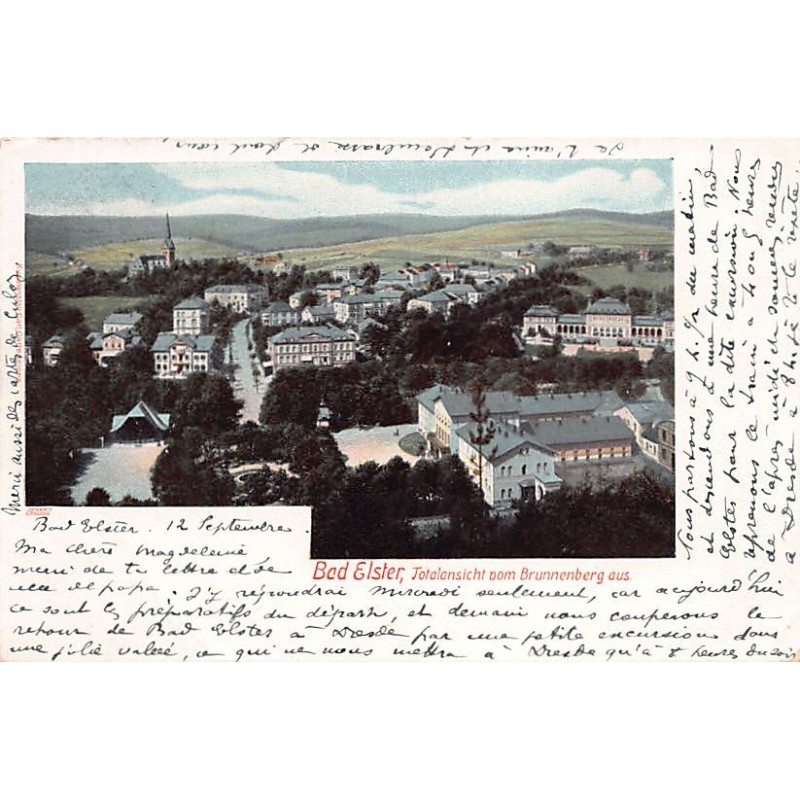 Bad Elster, Totalansicht vom Brunnenberg aus.
Bad Elster. 12 Septembre
Ma chère Magdeleine
merci de ta lettre et de
celle de papa. J'y répondrai Mercredi seulement, car aujourd'hui
ce sont les préparatifs du départ, et demain nous couperons le
retour de Bad Elster à Dresde par une petite excursion dans
une jolie vallée, ce qui ne nous mettra à Dresde qu'à 8 heures du soir
Nous partons à 9 h. ½ du matin
et descendons à une heure de Bad
Elster pour la dite excursion. Nous
reprenons le train à 4 heures
de l'après midi et sommes rendus
à Dresde à 8 h
Je t'aime et t'embrasse de tout cœur
Merci aussi des cartes de